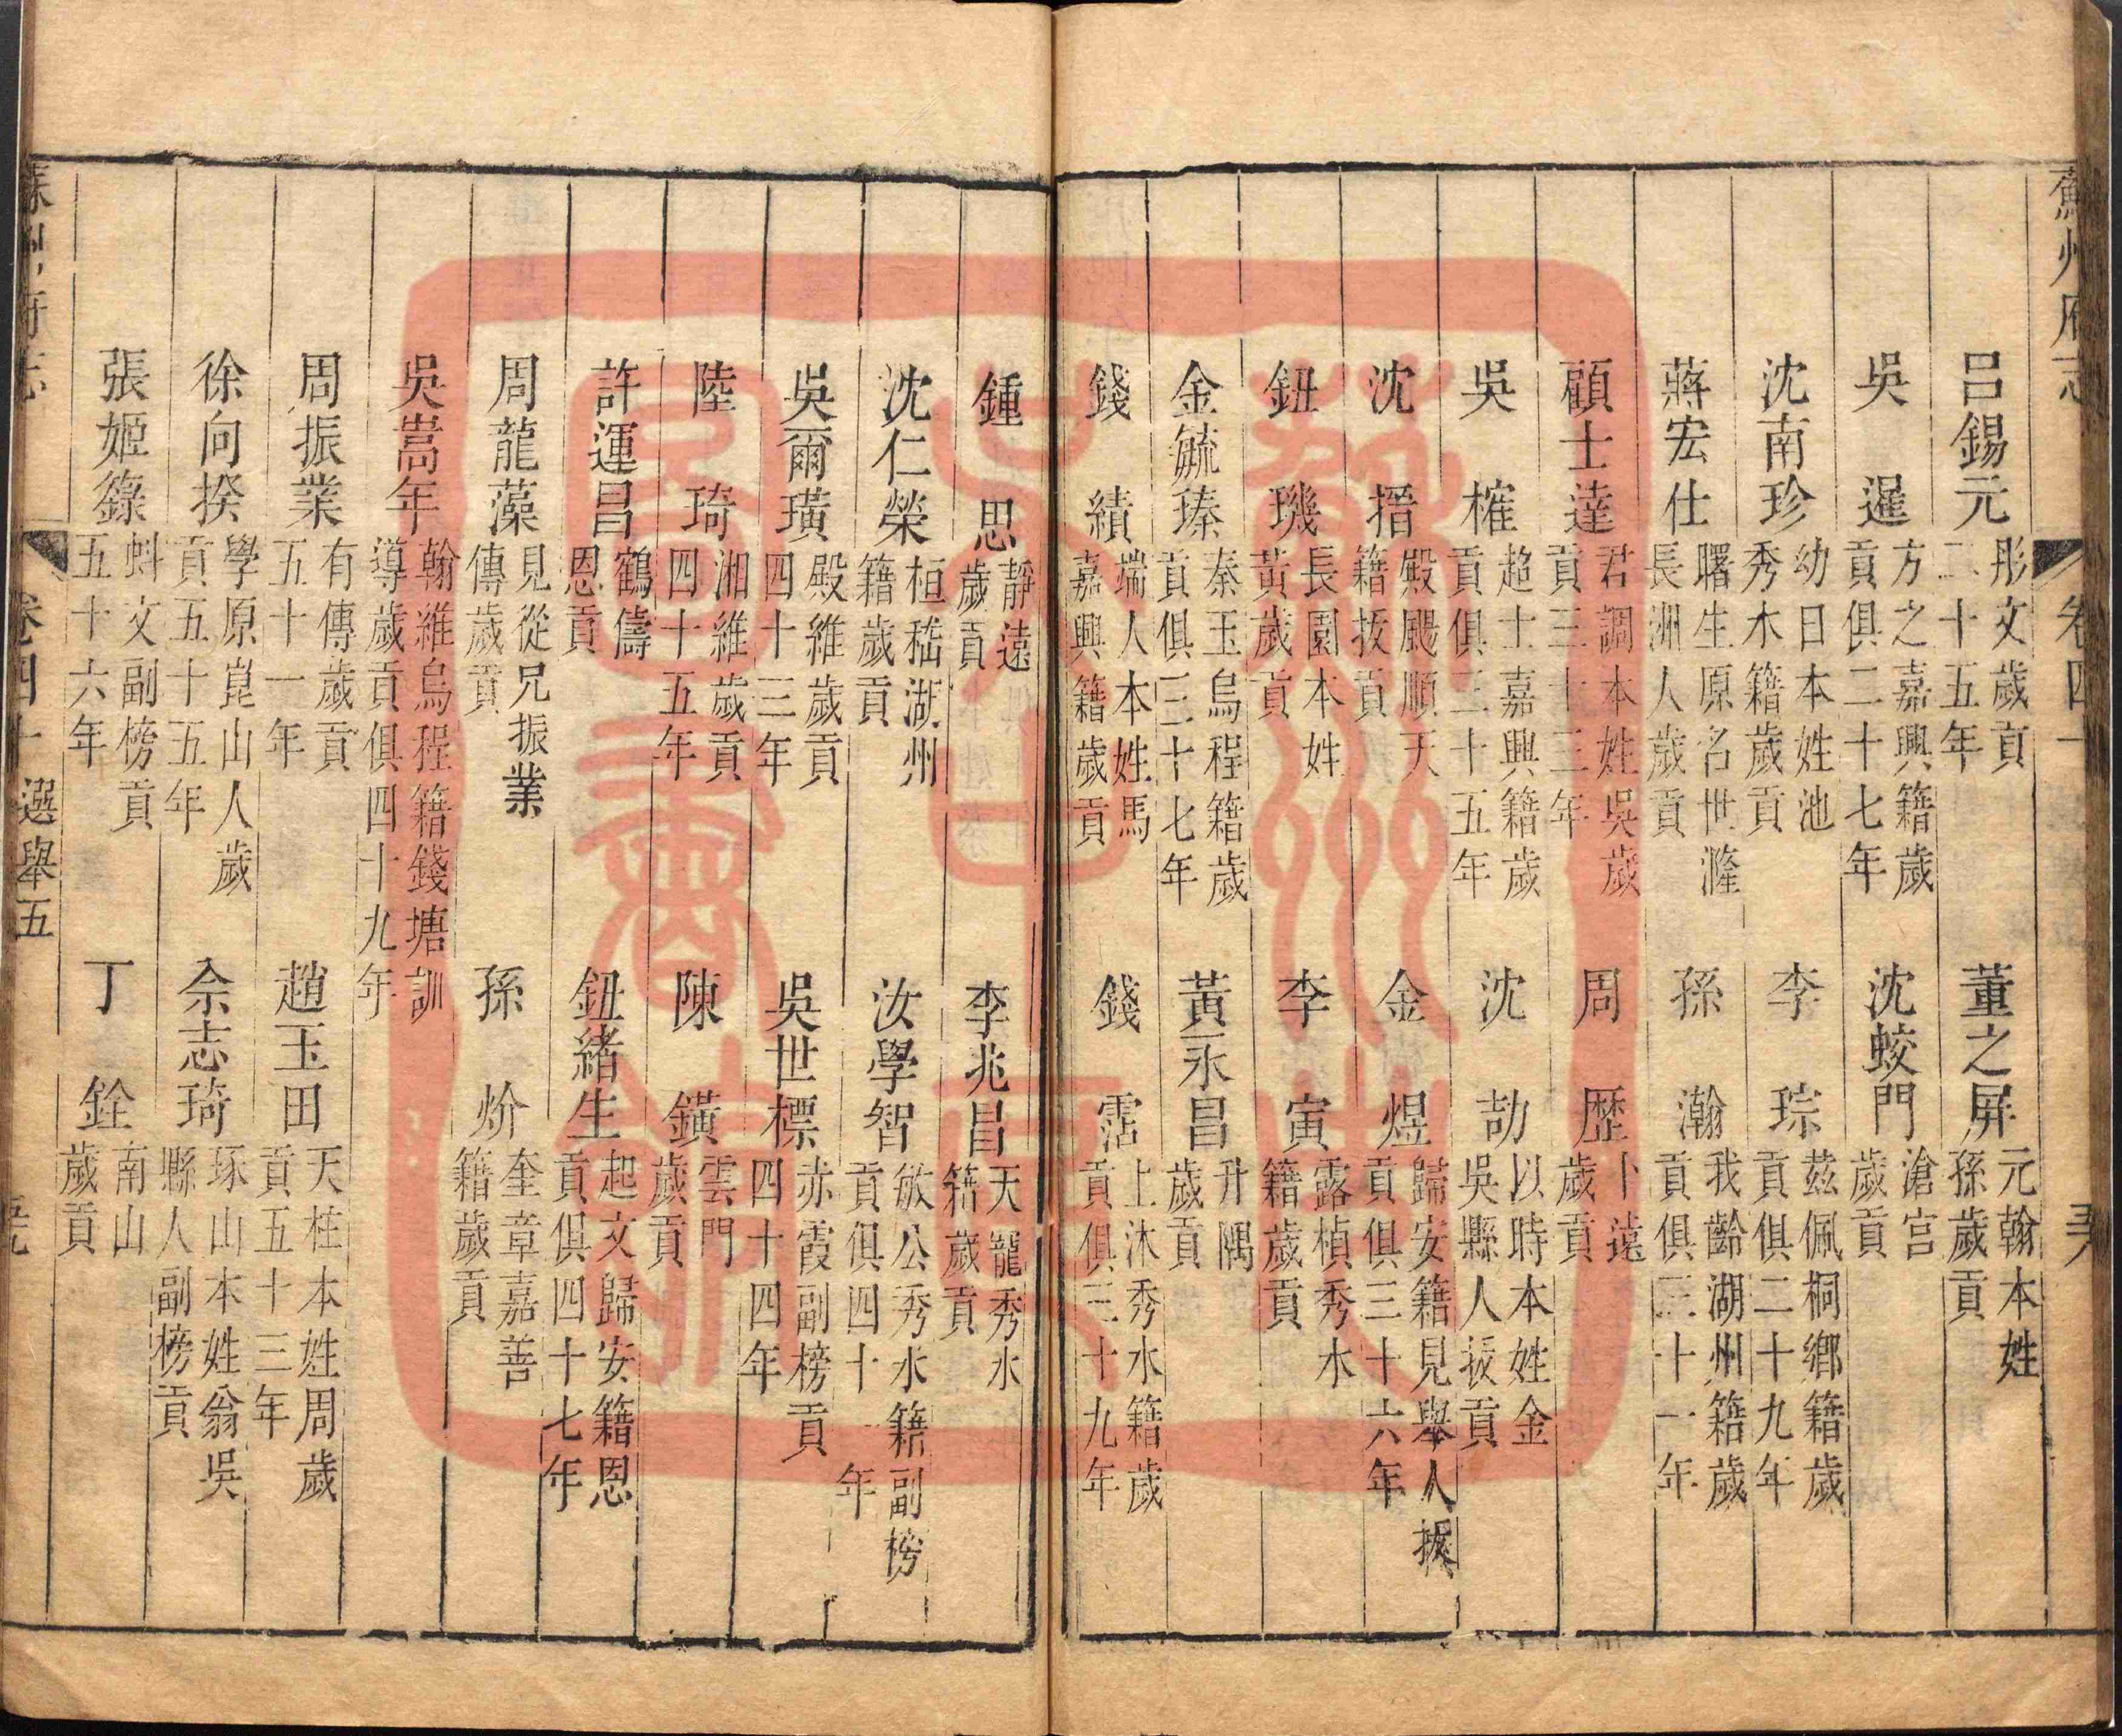 蘇州府志　卷四十　　　　
呂錫元　彤文歲貢二十五年　董之屏　元翰本姓孫歲貢
吳暹　方之嘉興籍歲貢俱二十七年　沈蛟門　滄宫歲貢
沈南珍　幼日本姓池秀水籍歲貢　李琮　茲佩桐鄉籍歲貢俱二十九年
蔣宏仕　曙生原名世漋長洲人歲貢　孫瀚　我齡湖州籍歲貢俱三十一年
顧士達　君調本姓吳歲貢三十三年　周歷　卜遠歲貢
吳権　超士嘉興籍歲貢俱三十五年　沈劼　以時本姓金吳縣人拔貢
沈搢　殿颺順天籍拔貢　金煜　歸安籍見舉人拔貢俱三十六年
鈕璣　長園本姓黃歲貢　李寅　露楨秀水籍歲貢
金毓瑧　秦玉烏程籍歲貢俱三十七年　黃永昌　升隅歲貢
錢績　端人本姓馬嘉興籍歲貢　錢霑　上沐秀水籍歲貢俱三十九年
鍾思　靜遠歲貢　李兆昌　天寵秀水籍歲貢
沈仁榮　桓嵇湖州籍歲貢　汝學智　敏公秀水籍副榜貢俱四十一年
吳爾璜　殿維歲貢四十三年　吳世標　赤霞副榜貢四十四年
陸琦　湘維歲貢四十五年　陳鐄　雲門歲貢
許運昌　鶴儔恩貢　鈕緒生　起文歸安籍恩貢俱四十七年
周龍藻　見從兄振業傳歲貢　孫炌　奎章嘉善籍歲貢
吳嵩年　翰維烏程籍錢塘訓導歲貢俱四十九年
周振業　有傳歲貢五十一年　趙玉田　天柱本姓周歲貢五十三年
徐向揆　學原崑山人歲貢五十五年　佘志琦　琢山本姓翁吳縣人副榜貢
張姬籙　蚪文副榜貢五十六年　丁銓　南山歲貢
蘇州府志　卷四十　選舉五